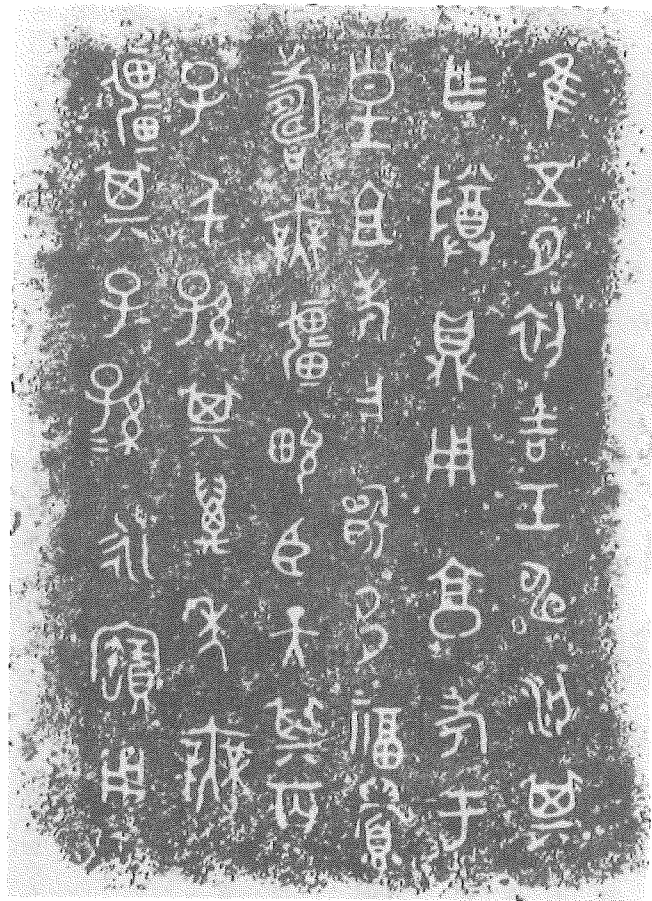 隹五月初吉壬申梁其
乍尊鼎用享考于
皇且考用祈多福眉
壽無疆畯臣天其百
子千孫其萬年無
疆其子孫=永寶用